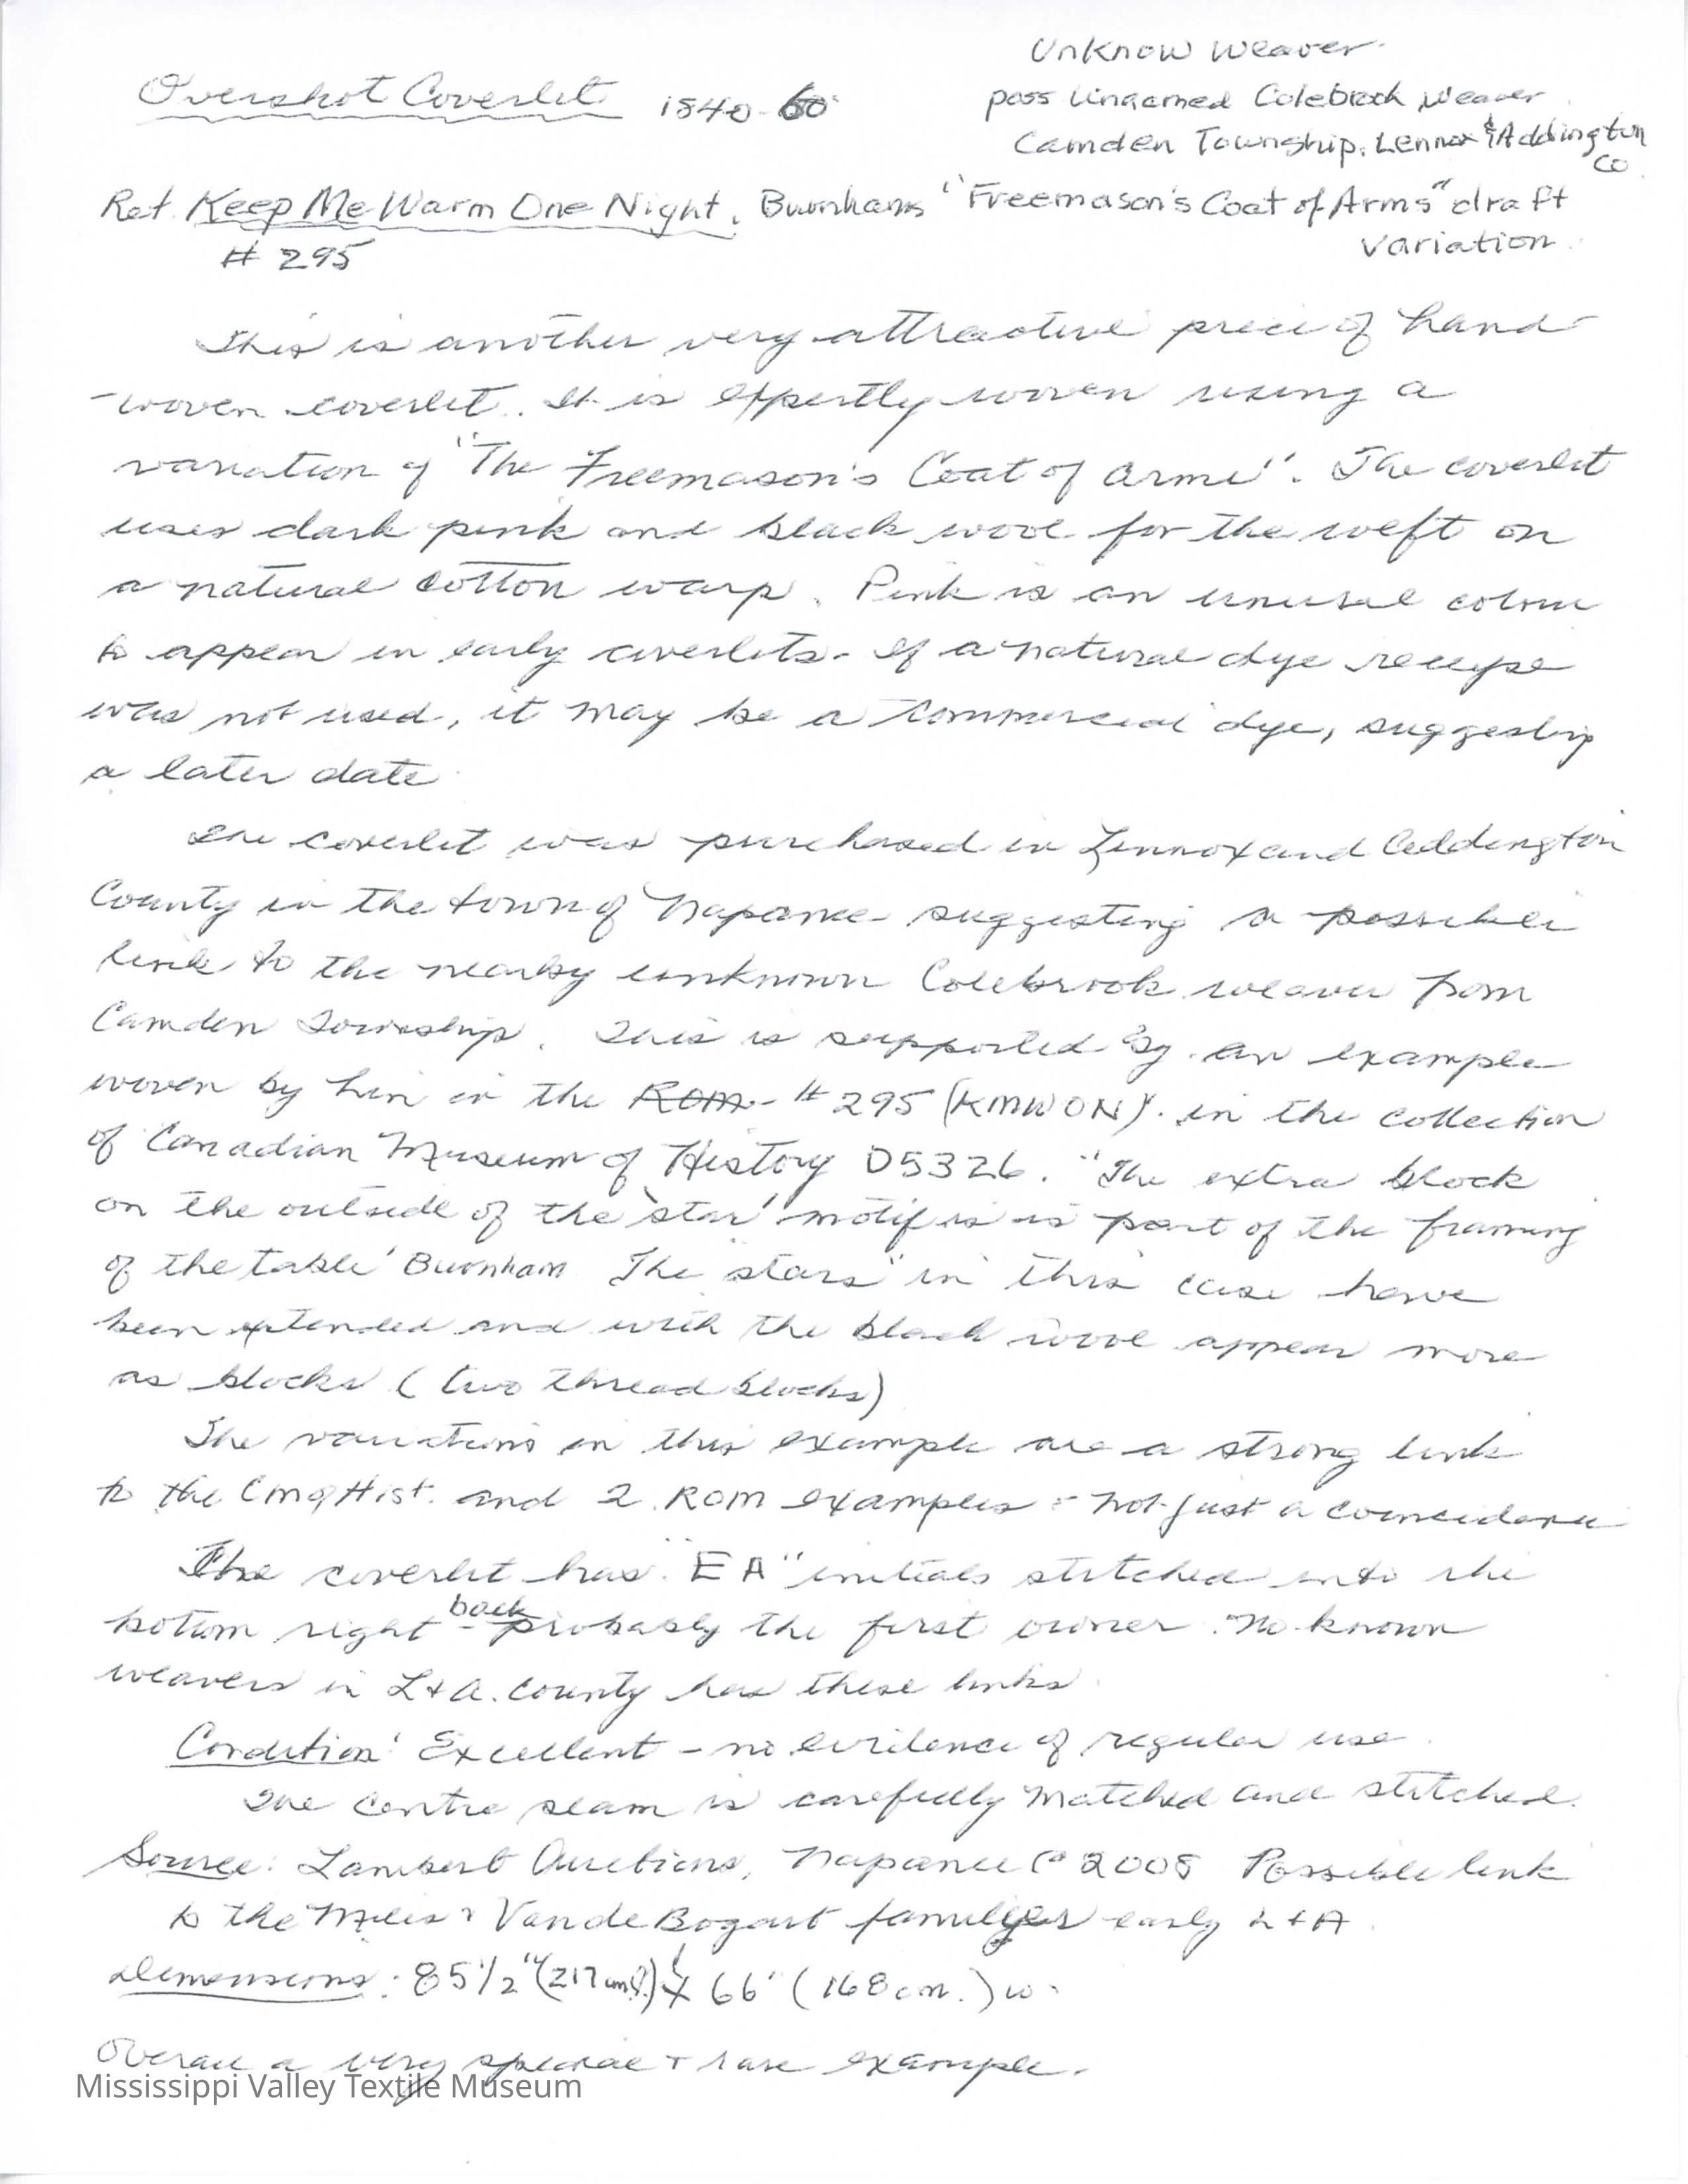 Unknow Weaver
Overshot Coverlet 1840-60
poss Unnamed Colebrook Weaver
Camden Township. Lennox & Addington
Co.
Ref. Keep Me Warm One Night, Burnhams "Freemason's Coat of Arms" draft
# 295
variation.
This is another very attractive piece of hand
-woven coverlet. It is expertly woven using a
variation of "The Freemason's Coat of Arms". The coverlet
uses dark pink and black wool for the weft on
a natural cotton warp. Pink is an unusual colour
to appear in early coverlets. If a natural dye recipe
was not used, it may be a commercial dye, suggesting
a later date
The coverlet was purchased in Lennox and Addington
County in the town of Napanee suggesting a possible
link to the nearby unknown Colebrook weaver from
Camden Township. This is supported by an example
woven by him in the ROM - # 295 (KMWON). in the collection
of Canadian Museum of History D5326. "The extra block
on the outside of the 'star' motif is is part of the framing
of the table' Burnham The "stars" in this case have
been extended and with the black wool appear more
as blocks (two thread blocks)
The variations in this example are a strong link
to the C m of Hist. and 2 ROM examples - not just a coincidence
The coverlet has "EA" initials stitched into the
bottom right back - probably the first owner. No known
weavers in L & A. County has these links.
Condition: Excellent - no evidence of regular use.
The centre seam is carefully matched and stitched.
Source: Lambert Auctions, Napanee Ca 2008 Possible link
to the Miles & VandeBogart families early L & A.
Dimensions: 85 1/2" (217 cm) l x 66" (168 cm.) w.
Overall a very special + rare example.
Mississippi Valley Textile Museum